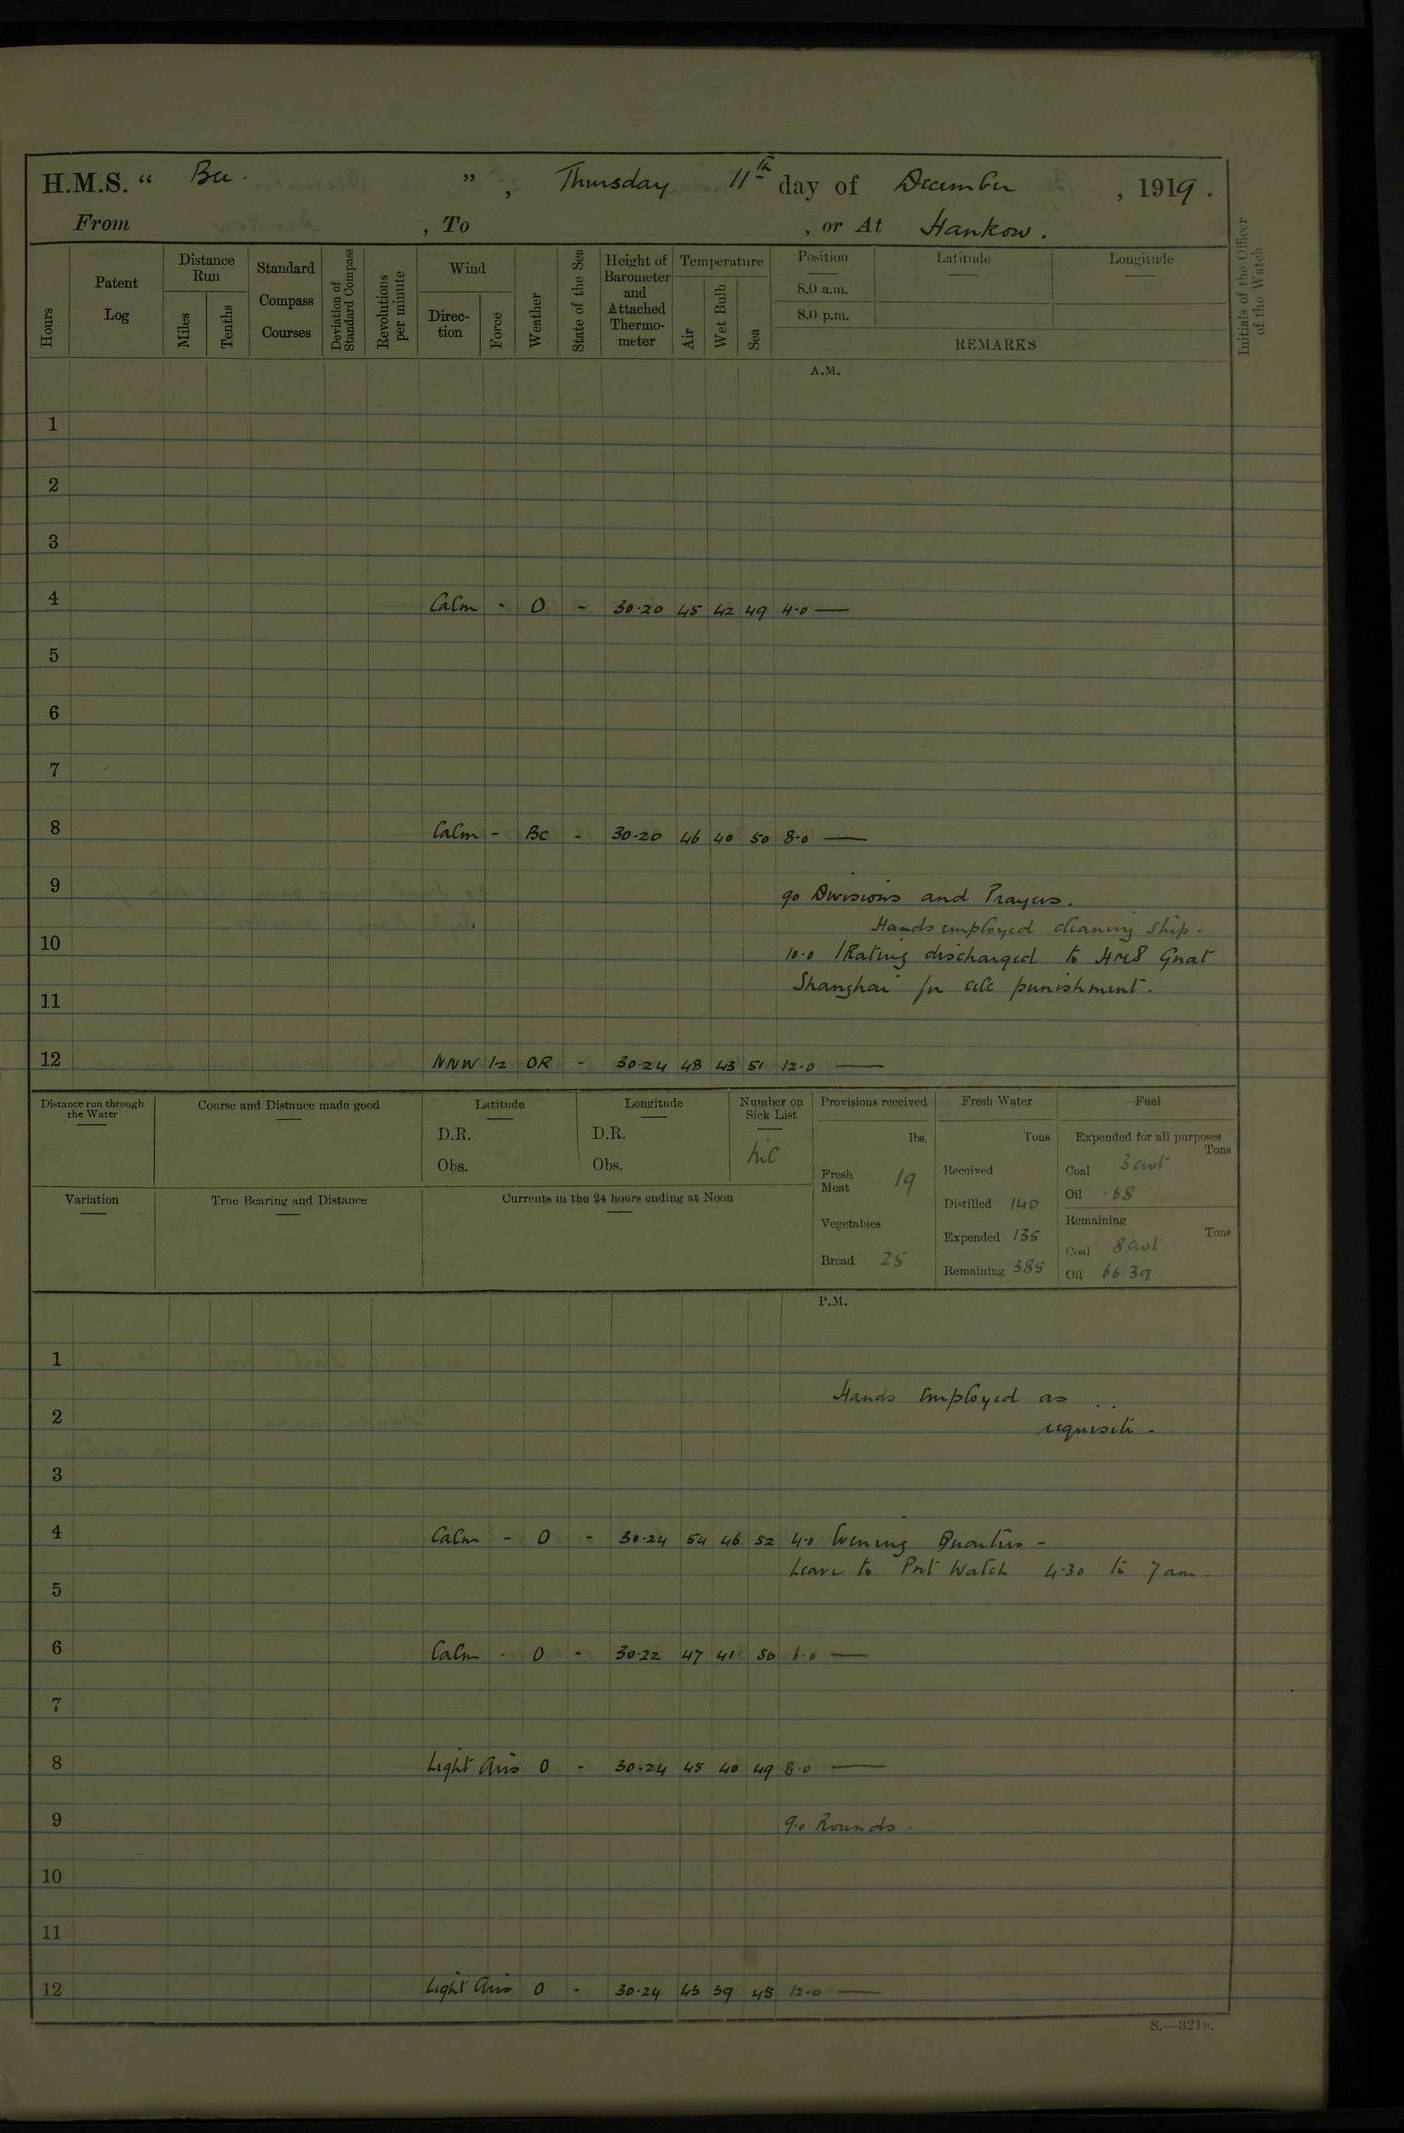 H.M.S. “ Bee. ” , Thursday 11th day of December , 1919 .
From , To , or At Hankow .
Hours
Patent Log
Distance Run
Miles
Tenths
Standard Compass Courses
Deviation of Standard Compass
Revolutions per minute
Wind
Direction
Force
Weather
State of the Sea
Height of Barometer and Attached Thermometer
Temperature
Air
Wet Bulb
Sea
Position
8.0 a.m.
8.0 p.m.
Latitude
Longitude
REMARKS
Initials of the Officer of the Watch
A.M.
1
2
3
4 Calm - O - 30.20 45 42 49 4.0 —
5
6
7
8 Calm - BC - 30.20 46 40 50 8.0 —
9 9.0 Divisions and Prayers.
Hands employed cleaning ship.
10 10.0 1 Rating discharged to HMS Gnat
Shanghai for punishment.
11
12 NNW 1-2 OR - 30.24 48 43 51 12.0 —
Distance run through the Water
Course and Distance made good
Latitude
D.R.
Obs.
Longitude
D.R.
Obs.
Number on Sick List
Nil
Provisions received
lbs.
Fresh Meat 19
Vegetables
Bread 25
Fresh Water
Tons
Received
Distilled 140
Expended 135
Remaining 385
Fuel
Expended for all purposes
Tons
Coal 3 cwt
Oil .68
Remaining
Tons
Coal 8 cwt
Oil 66.39
Variation
True Bearing and Distance
Currents in the 24 hours ending at Noon
P.M.
1
Hands employed as
2
requisite -
3
4 Calm - O - 30.24 54 46 52 4.0 Evening Quarters -
Leave to Port Watch 4.30 to 7 am.
5
6 Calm - O - 30.22 47 41 50 6.0 —
7
8 Light Airs O - 30.24 45 40 49 8.0 —
9 9.0 Rounds.
10
11
12 Light Airs O - 30.24 43 39 48 12.0 —